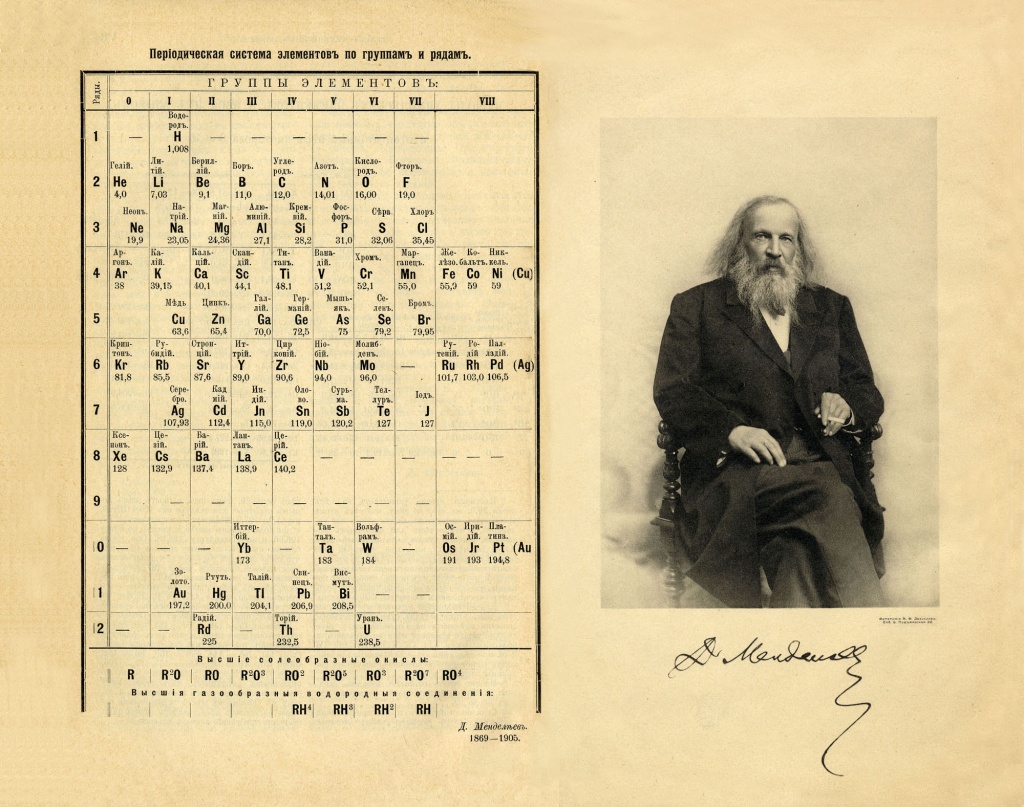 Періодическая система элементовъ по группамъ и рядамъ.
Ряды. ГРУППЫ ЭЛЕМЕНТОВЪ:
0 I II III IV V VI VII VIII
1 — Водородъ. H 1,008 — — — — — —
2 Гелій. He 4,0 Литій. Li 7,03 Бериллій. Be 9,1 Боръ. B 11,0 Углеродъ. C 12,0 Азотъ. N 14,01 Кислородъ. O 16,00 Фторъ. F 19,0
3 Неонъ. Ne 19,9 Натрій. Na 23,05 Магній. Mg 24,36 Алюминій. Al 27,1 Кремній. Si 28,2 Фосфоръ. P 31,0 Сѣра. S 32,06 Хлоръ. Cl 35,45
4 Аргонъ. Ar 38 Калій. K 39,15 Кальцій. Ca 40,1 Скандій. Sc 44,1 Титанъ. Ti 48.1 Ванадій. V 51,2 Хромъ. Cr 52,1 Марганецъ. Mn 55,0 Желѣзо. Fe 55,9 Кобальтъ. Co 59 Никкель. Ni 59 (Cu)
5 Мѣдь Cu 63,6 Цинкъ. Zn 65,4 Галлій. Ga 70,0 Германій. Ge 72,5 Мышьякъ. As 75 Селенъ. Se 79,2 Бромъ. Br 79,95
6 Криптонъ. Kr 81,8 Рубидій. Rb 85,5 Стронцій. Sr 87,6 Иттрій. Y 89,0 Цирконій. Zr 90,6 Ніобій. Nb 94,0 Молибденъ. Mo 96,0 — Рутеній. Ru 101,7 Родій Rh 103,0 Палладій. Pd 106,5 (Ag)
7 Серебро. Ag 107,93 Кадмій. Cd 112,4 Индій. Jn 115,0 Олово. Sn 119,0 Сурьма. Sb 120,2 Теллуръ. Te 127 Іодъ. J 127
8 Ксенонъ. Xe 128 Цезій. Cs 132,9 Барій. Ba 137.4 Лантанъ. La 138,9 Церій. Ce 140,2 — — — — — —
9 — — — — — — —
10 — — — Иттербій. Yb 173 — Танталъ. Ta 183 Вольфрамъ. W 184 — Осмій. Os 191 Иридій. Jr 193 Платина. Pt 194,8 (Au
11 Золото. Au 197,2 Ртуть. Hg 200.0 Талій. Tl 204,1 Свинецъ. Pb 206,9 Висмутъ. Bi 208,5 — —
12 — — Радій. Rd 225 — Торій. Th 232,5 — Уранъ. U 238,5
Высшіе солеобразные окислы:
R R²O RO R²O³ RO² R²O⁵ RO³ R²O⁷ RO⁴
Высшія газообразныя водородныя соединенія:
RH⁴ RH³ RH² RH
Д. Менделѣевъ.
1869—1905.
Д. Менделѣев